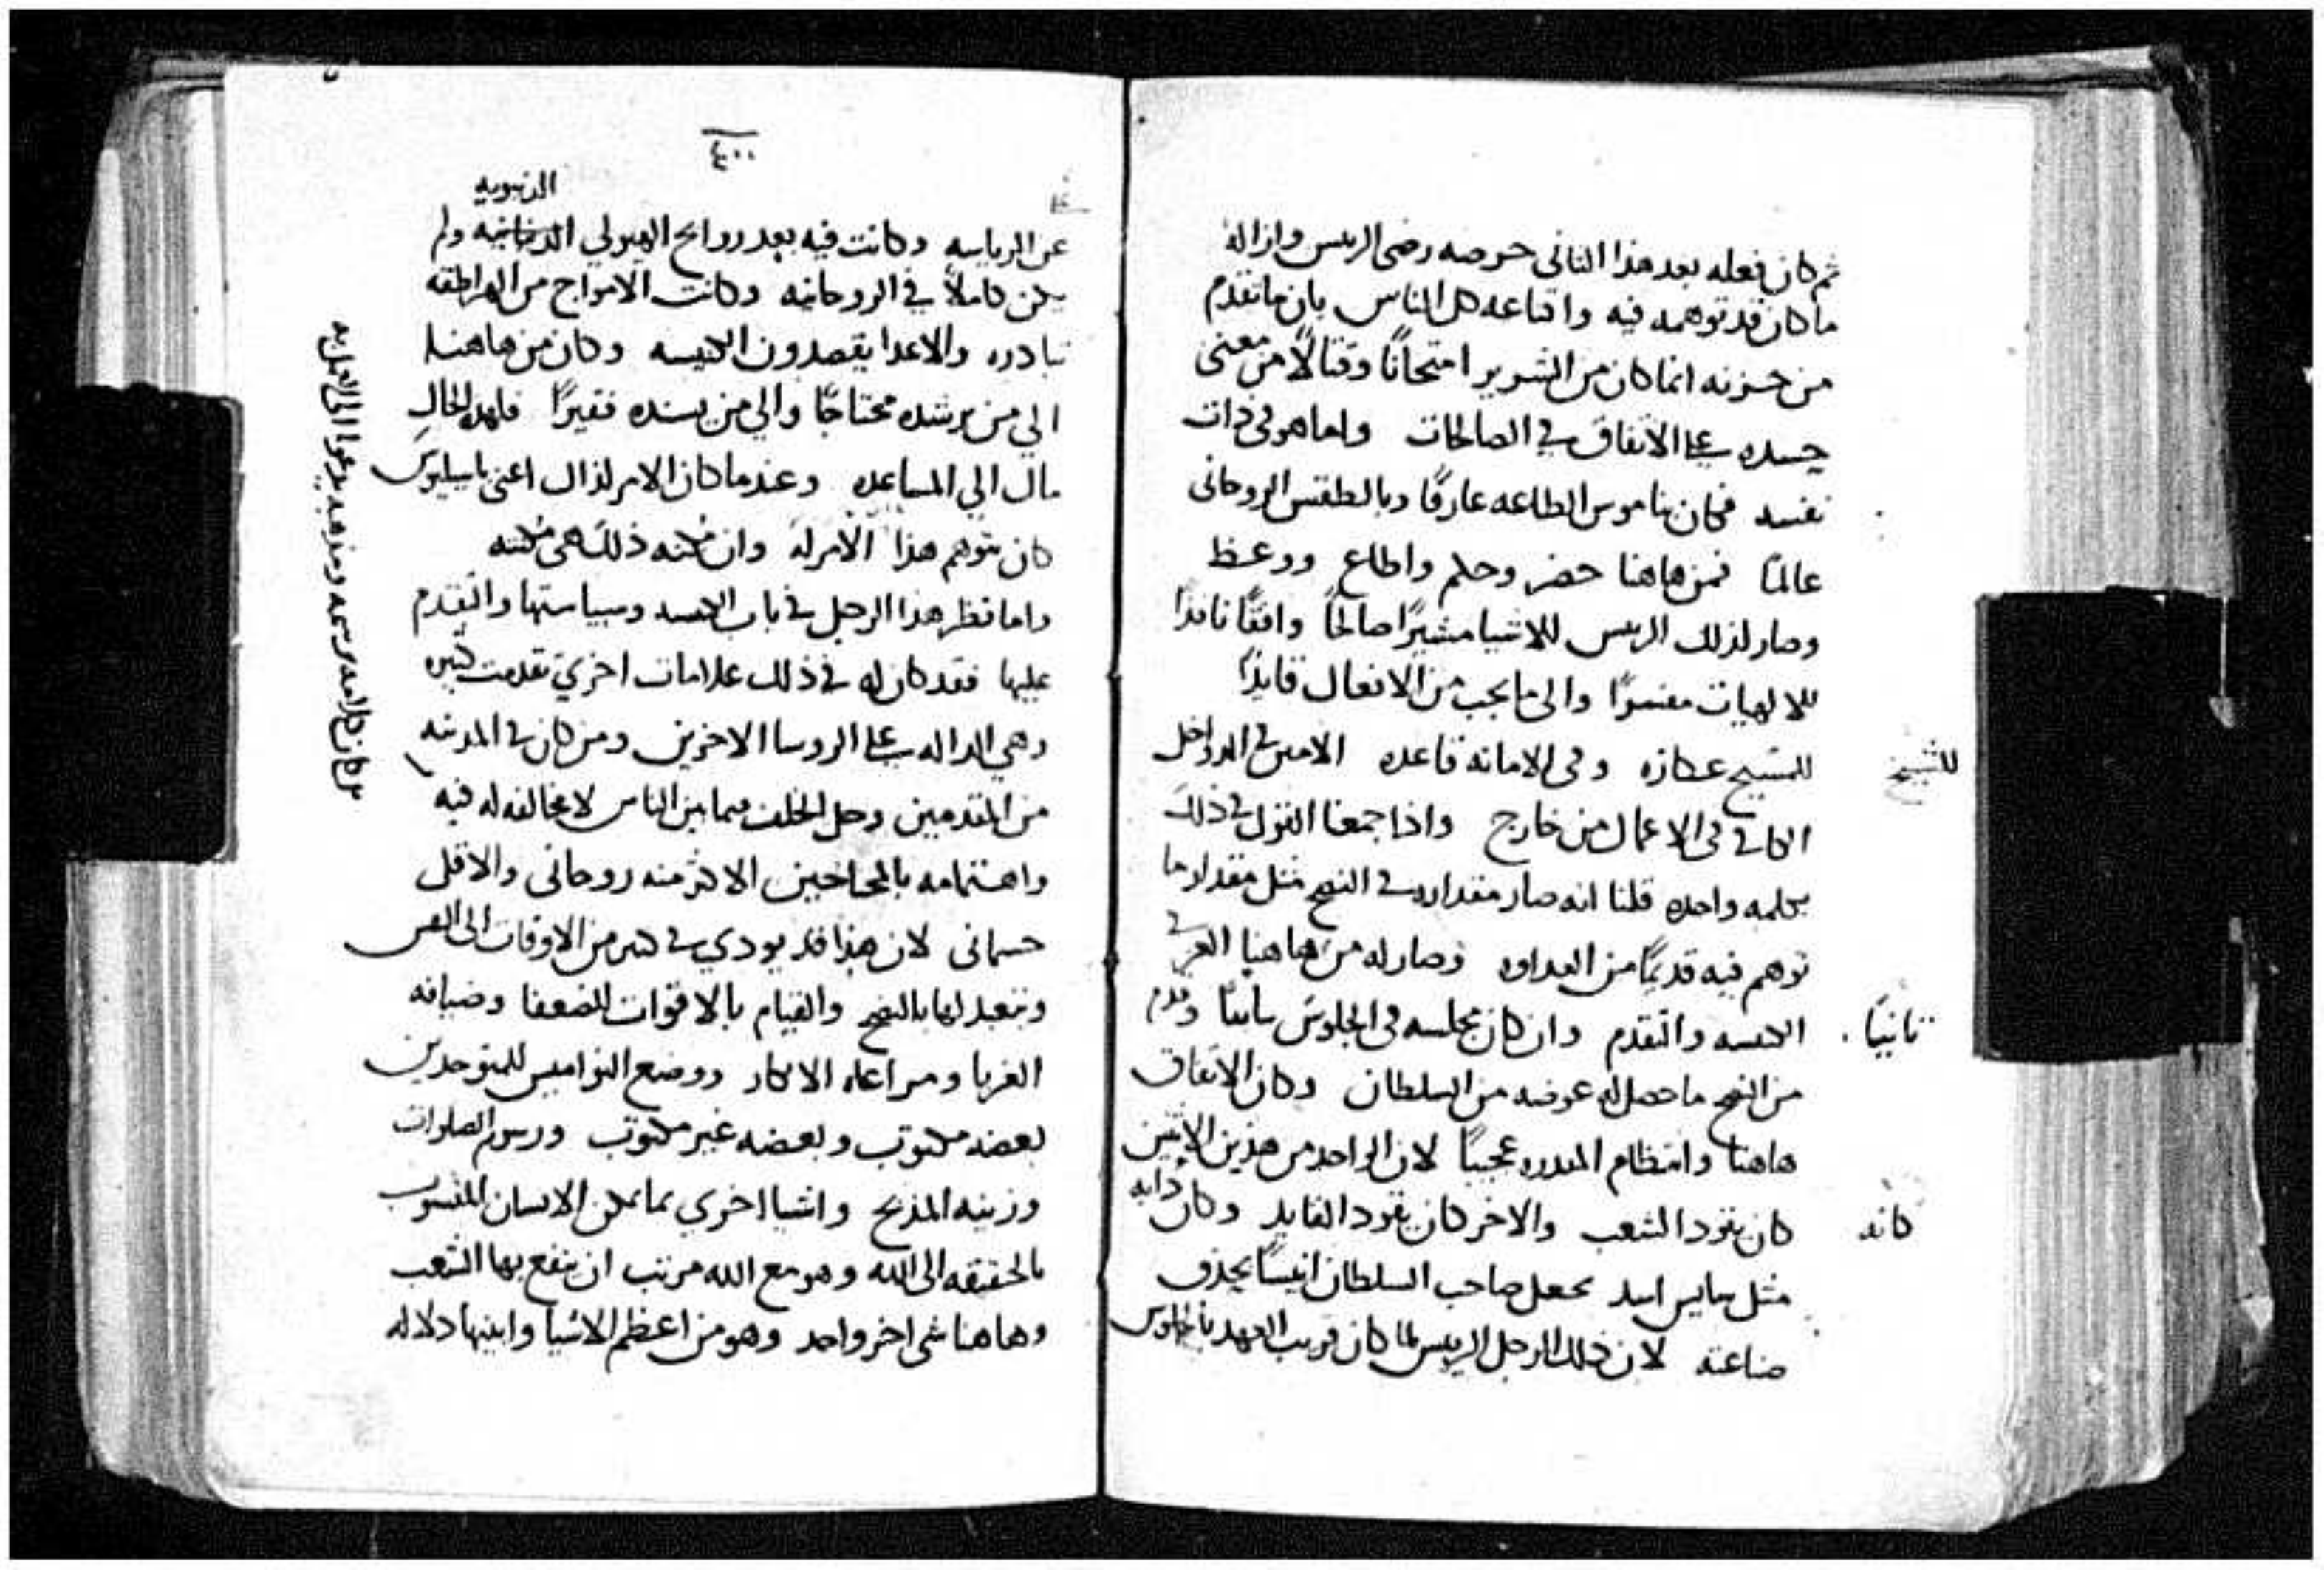 ثم كان فعله بعد هذا الثاني حرصه رضى الريس وازالة
ما كان قد توهمه فيه واقناعه كل الناس بان ما تقدم
من حزنه انما كان من الشرير امتحانًا وقتالًا من معنى
حسده على الاتفاق في الصالحات واما هو في ذات
نفسه فكان بناموس الطاعه عارفًا وبالطقس الروحاني
عالمًا فمن هاهنا حضر وحلم واطاع ووعظ
وصار لذلك الريس للاشيا مشيرًا صالحًا واقفًا نافذًا
للالهيات مفسرًا والى ما يجب من الافعال قايدًا
للمسيح عكازه وفى الامانه قاعده الامين في الدواخل
للشيخ
الكافي في الاعمال من خارج واذا جمعنا القول في ذلك
بكلمه واحده قلنا انه صار مقداره في النصح مثل مقدار ما
توهم فيه قديمًا من العداوه وصار له من هاهنا العز في
الكنيسه والتقدم وان كان مجلسه فى الجلوس ثانيًا وقدم
ثانيًا
من النصح ما حصل له عوضه من السلطان وكان الاتفاق
هاهنا وانتظام المقدره عجيبًا لان الواحد من هذين الاثنين
كان يقود الشعب والاخر كان يقود القايد وكان دابه
كانه
مثل سايس اسد يجعل صاحب السلطان انيسًا بحذق
صناعته لان ذلك الرجل الريس لما كان قريب العهد بالجلوس
٤٠٠
الدنيويه
عن الرياسه وكانت فيه بعد روايح الهيولي ولم
يكن كاملًا في الروحانيه وكانت الامواج من الهراطقه
تبادره والاعدا يقصدون الكنيسه وكان من هاهنا
الي من يرشده محتاجًا والي من يسنده فقيرًا فلهذا الحال
مال الي المساعده وعندما كان الامر لذاك اعنى باسيليوس
كان يتوهم هذا الامر له وان مكنه ذلك هى مكنته
واما نظر هذا الرجل في باب الكنيسه وسياستها والتقدم
عليها فقد كان له في ذلك علامات اخري تقدمت كثيره
وهي الداله على الروسا الاخرين ومن كان في المدينه
من المقدمين وحل الخلف فيما بين الناس لا مخالفه له فيه
واهتمامه بالمحتاجين الاكثر منه روحاني والاقل
جسماني لان هذا قد يودي في كثير من الاوقات الى النفس
وتتعبد لها بالنصح والقيام بالاقوات للضعفا وضيافه
الغربا ومراعاه الابكار ووضع النواميس للمتوحدين
بعضه مكتوب وبعضه غير مكتوب ورسوم الصلوات
وزينه المذبح واشيا اخري بما يمكن الانسان المنسوب
بالحقيقه الى الله وهو مع الله مرتب ان ينفع بها الشعب
وهاهنا شى اخر واحد وهو من اعظم الاشيا وابينها دلاله